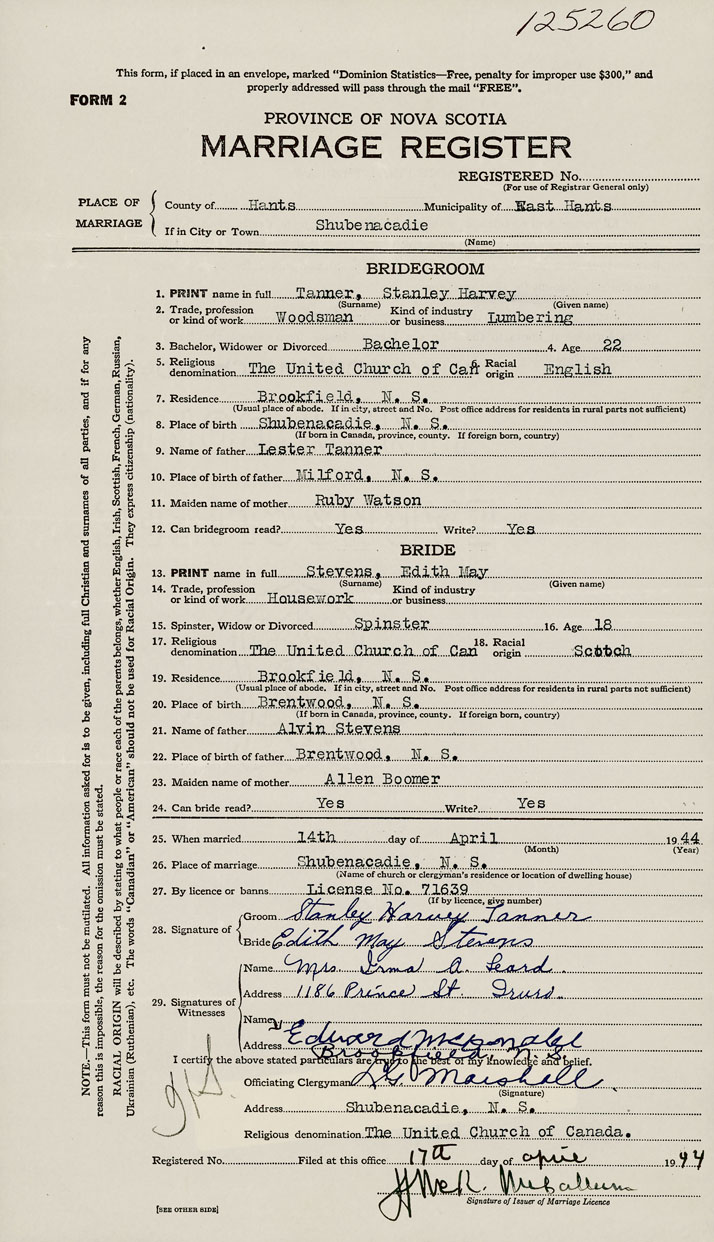 125260
This form, if placed in an envelope, marked "Dominion Statistics—Free, penalty for improper use $300," and
properly addressed will pass through the mail "FREE".
FORM 2
PROVINCE OF NOVA SCOTIA
MARRIAGE REGISTER
REGISTERED No.
(For use of Registrar General only)
PLACE OF MARRIAGE
County of Hants Municipality of East Hants
If in City or Town Shubenacadie
(Name)
BRIDEGROOM
1. PRINT name in full Tanner, Stanley Harvey
(Surname) (Given name)
2. Trade, profession or kind of work Woodsman Kind of industry or business Lumbering
3. Bachelor, Widower or Divorced Bachelor 4. Age 22
5. Religious denomination The United Church of Can Racial origin English
7. Residence Brookfield, N. S.
(Usual place of abode. If in city, street and No. Post office address for residents in rural parts not sufficient)
8. Place of birth Shubenacadie, N. S.
(If born in Canada, province, county. If foreign born, country)
9. Name of father Lester Tanner
10. Place of birth of father Milford, N. S.
11. Maiden name of mother Ruby Watson
12. Can bridegroom read? Yes Write? Yes
BRIDE
13. PRINT name in full Stevens, Edith May
(Surname) (Given name)
14. Trade, profession or kind of work Housework Kind of industry or business
15. Spinster, Widow or Divorced Spinster 16. Age 18
17. Religious denomination The United Church of Can 18. Racial origin Scotch
19. Residence Brookfield, N. S.
(Usual place of abode. If in city, street and No. Post office address for residents in rural parts not sufficient)
20. Place of birth Brentwood, N. S.
(If born in Canada, province, county. If foreign born, country)
21. Name of father Alvin Stevens
22. Place of birth of father Brentwood, N. S.
23. Maiden name of mother Allen Boomer
24. Can bride read? Yes Write? Yes
25. When married 14th day of April 1944
(Month) (Year)
26. Place of marriage Shubenacadie, N. S.
(Name of church or clergyman's residence or location of dwelling house)
27. By licence or banns License No. 71639
(If by licence, give number)
28. Signature of
Groom Stanley Harvey Tanner
Bride Edith May Stevens
29. Signatures of Witnesses
Name Mrs. Irma A. Leard
Address 1186 Prince St. Truro.
Name
Address Edward McDonald
Brookfield, N. S.
I certify the above stated particulars are true to the best of my knowledge and belief.
Officiating Clergyman Marshall
(Signature)
Address Shubenacadie, N. S.
Religious denomination The United Church of Canada.
Registered No. Filed at this office 17th day of april 1944
Signature of Issuer of Marriage Licence
[SEE OTHER SIDE]
NOTE.—This form must not be mutilated. All information asked for is to be given, including full Christian and surnames of all parties, and if for any
reason this is impossible, the reason for the omission must be stated.
RACIAL ORIGIN will be described by stating to what people or race each of the parents belongs, whether English, Irish, Scottish, French, German, Russian,
Ukrainian (Ruthenian), etc. The words "Canadian" or "American" should not be used for Racial Origin. They express citizenship (nationality).